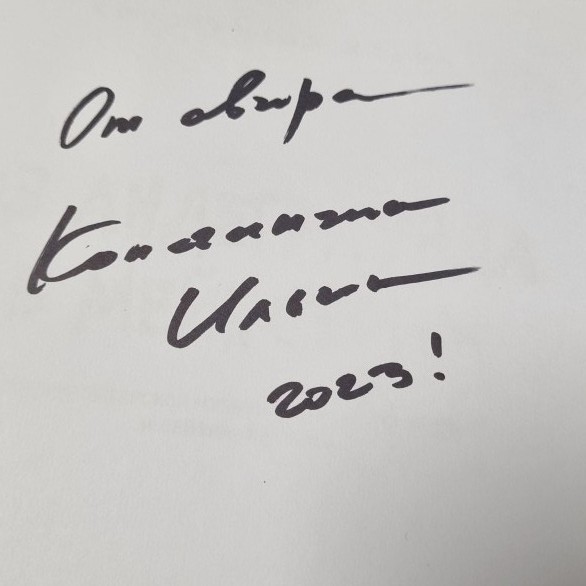 От автора
Константина
Ильина
2023!